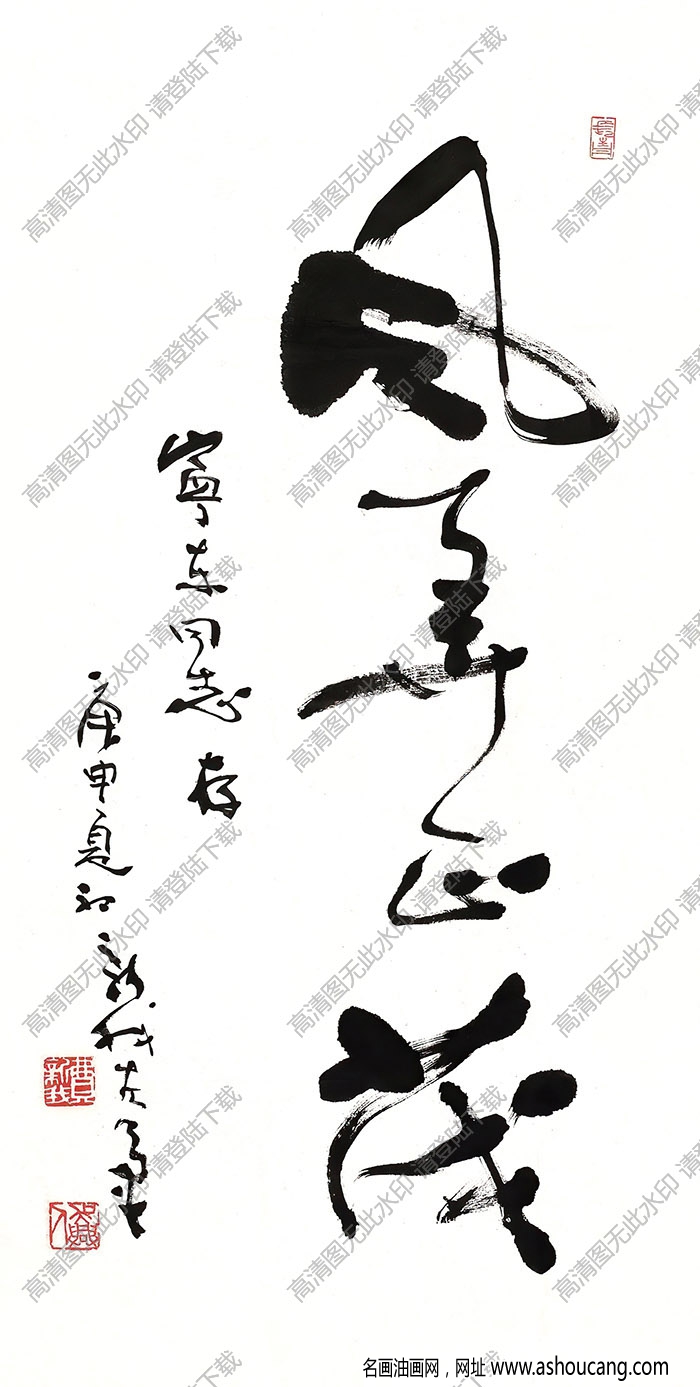 风華正茂
寧东同志存
庚申夏初新我左
費新我
吴興人
高清图无此水印 请登陆下载
名画油画网，网址 www.ashoucang.com